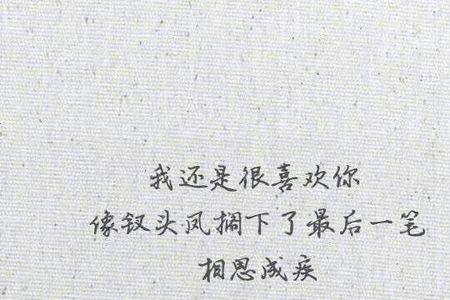 我还是很喜欢你
像钗头凤搁下了最后一笔
相思成疾